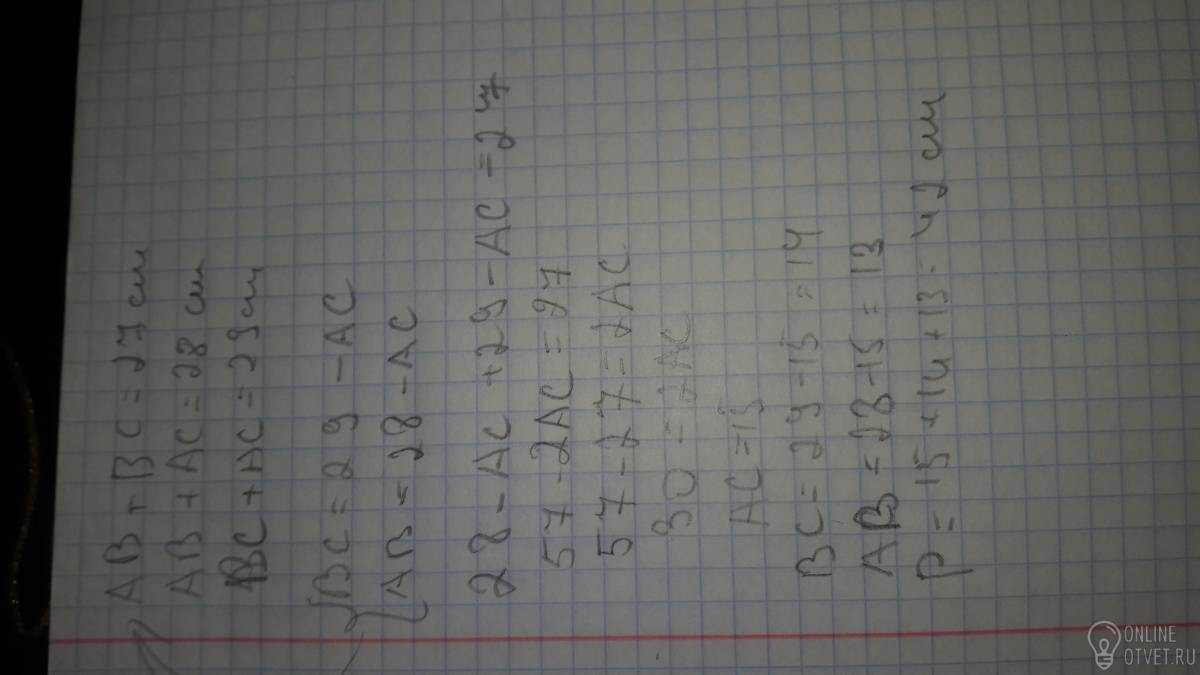 AB + BC = 27 см
AB + AC = 28 см
BC + AC = 29 см
BC = 29 - AC
AB = 28 - AC
28 - AC + 29 - AC = 27
57 - 2AC = 27
57 - 27 = 2AC
30 = 2AC
AC = 15
BC = 29 - 15 = 14
AB = 28 - 15 = 13
P = 15 + 14 + 13 = 42 см
ONLINE
OTVET.RU